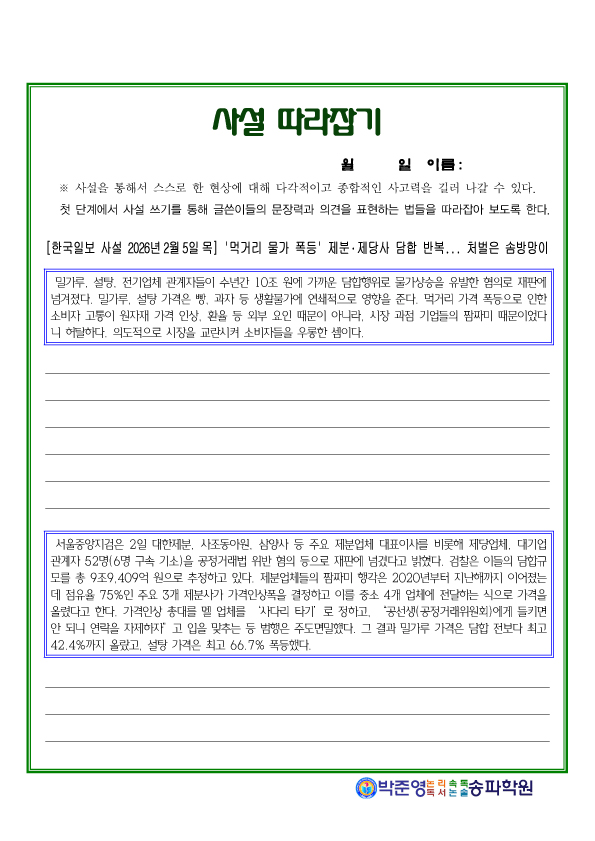 사설 따라잡기
월 일 이름:
※ 사설을 통해서 스스로 한 현상에 대해 다각적이고 종합적인 사고력을 길러 나갈 수 있다.
첫 단계에서 사설 쓰기를 통해 글쓴이들의 문장력과 의견을 표현하는 법들을 따라잡아 보도록 한다.
[한국일보 사설 2026년 2월 5일 목] '먹거리 물가 폭등' 제분·제당사 담합 반복... 처벌은 솜방망이
밀가루, 설탕, 전기업체 관계자들이 수년간 10조 원에 가까운 담합행위로 물가상승을 유발한 혐의로 재판에
넘겨졌다. 밀가루, 설탕 가격은 빵, 과자 등 생활물가에 연쇄적으로 영향을 준다. 먹거리 가격 폭등으로 인한
소비자 고통이 원자재 가격 인상, 환율 등 외부 요인 때문이 아니라, 시장 과점 기업들의 짬짜미 때문이었다
니 허탈하다. 의도적으로 시장을 교란시켜 소비자들을 우롱한 셈이다.
서울중앙지검은 2일 대한제분, 사조동아원, 삼양사 등 주요 제분업체 대표이사를 비롯해 제당업체, 대기업
관계자 52명(6명 구속 기소)을 공정거래법 위반 혐의 등으로 재판에 넘겼다고 밝혔다. 검찰은 이들의 담합규
모를 총 9조9,409억 원으로 추정하고 있다. 제분업체들의 짬짜미 행각은 2020년부터 지난해까지 이어졌는
데 점유율 75%인 주요 3개 제분사가 가격인상폭을 결정하고 이를 중소 4개 업체에 전달하는 식으로 가격을
올렸다고 한다. 가격인상 총대를 멜 업체를 ‘사다리 타기’로 정하고, “공선생(공정거래위원회)에게 들키면
안 되니 연락을 자제하자”고 입을 맞추는 등 범행은 주도면밀했다. 그 결과 밀가루 가격은 담합 전보다 최고
42.4%까지 올랐고, 설탕 가격은 최고 66.7% 폭등했다.
박준영 논리속독 독서논술 송파학원